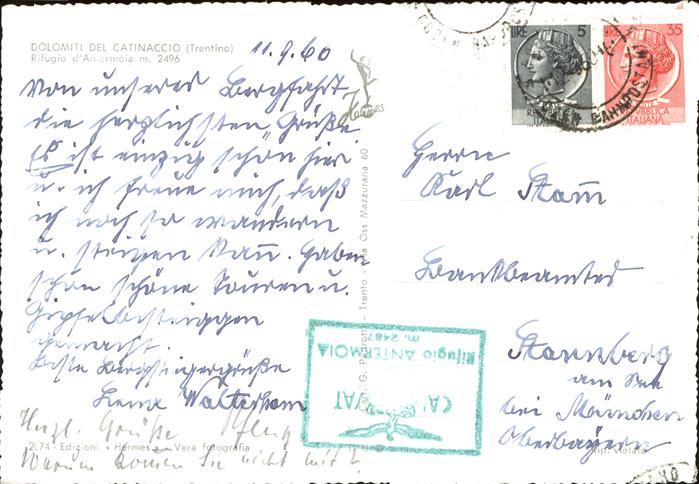 DOLOMITI DEL CATINACCIO (Trentino)
Rifugio d'Antermoia m. 2496
11.9.60
Von unserer Bergfahrt
die herzlichsten Grüße.
Es ist einzig schön hier
u. ich freue mich, daß
ich noch so wandern
u. steigen kann. Haben
schon schöne Touren u.
Gipfelbesteigungen
gemacht.
Beste Bergsteigergrüße
Lena
Herzl. Grüße
Warum kommen Sie nicht mit?
2.74 - Edizioni «Hermes» - Vera fotografia
Hermes
Trento - Via Oss Mazzurana 60
LIRE 5
LIRE 35
REPUBBLICA
ITALIANA
BAHNPOST
Herrn
Karl Stam̄
Bankbeamter
Starnberg
am See
bei München
Oberbayern
Rip. vietata
Rifugio ANTERMOIA
m. 2487